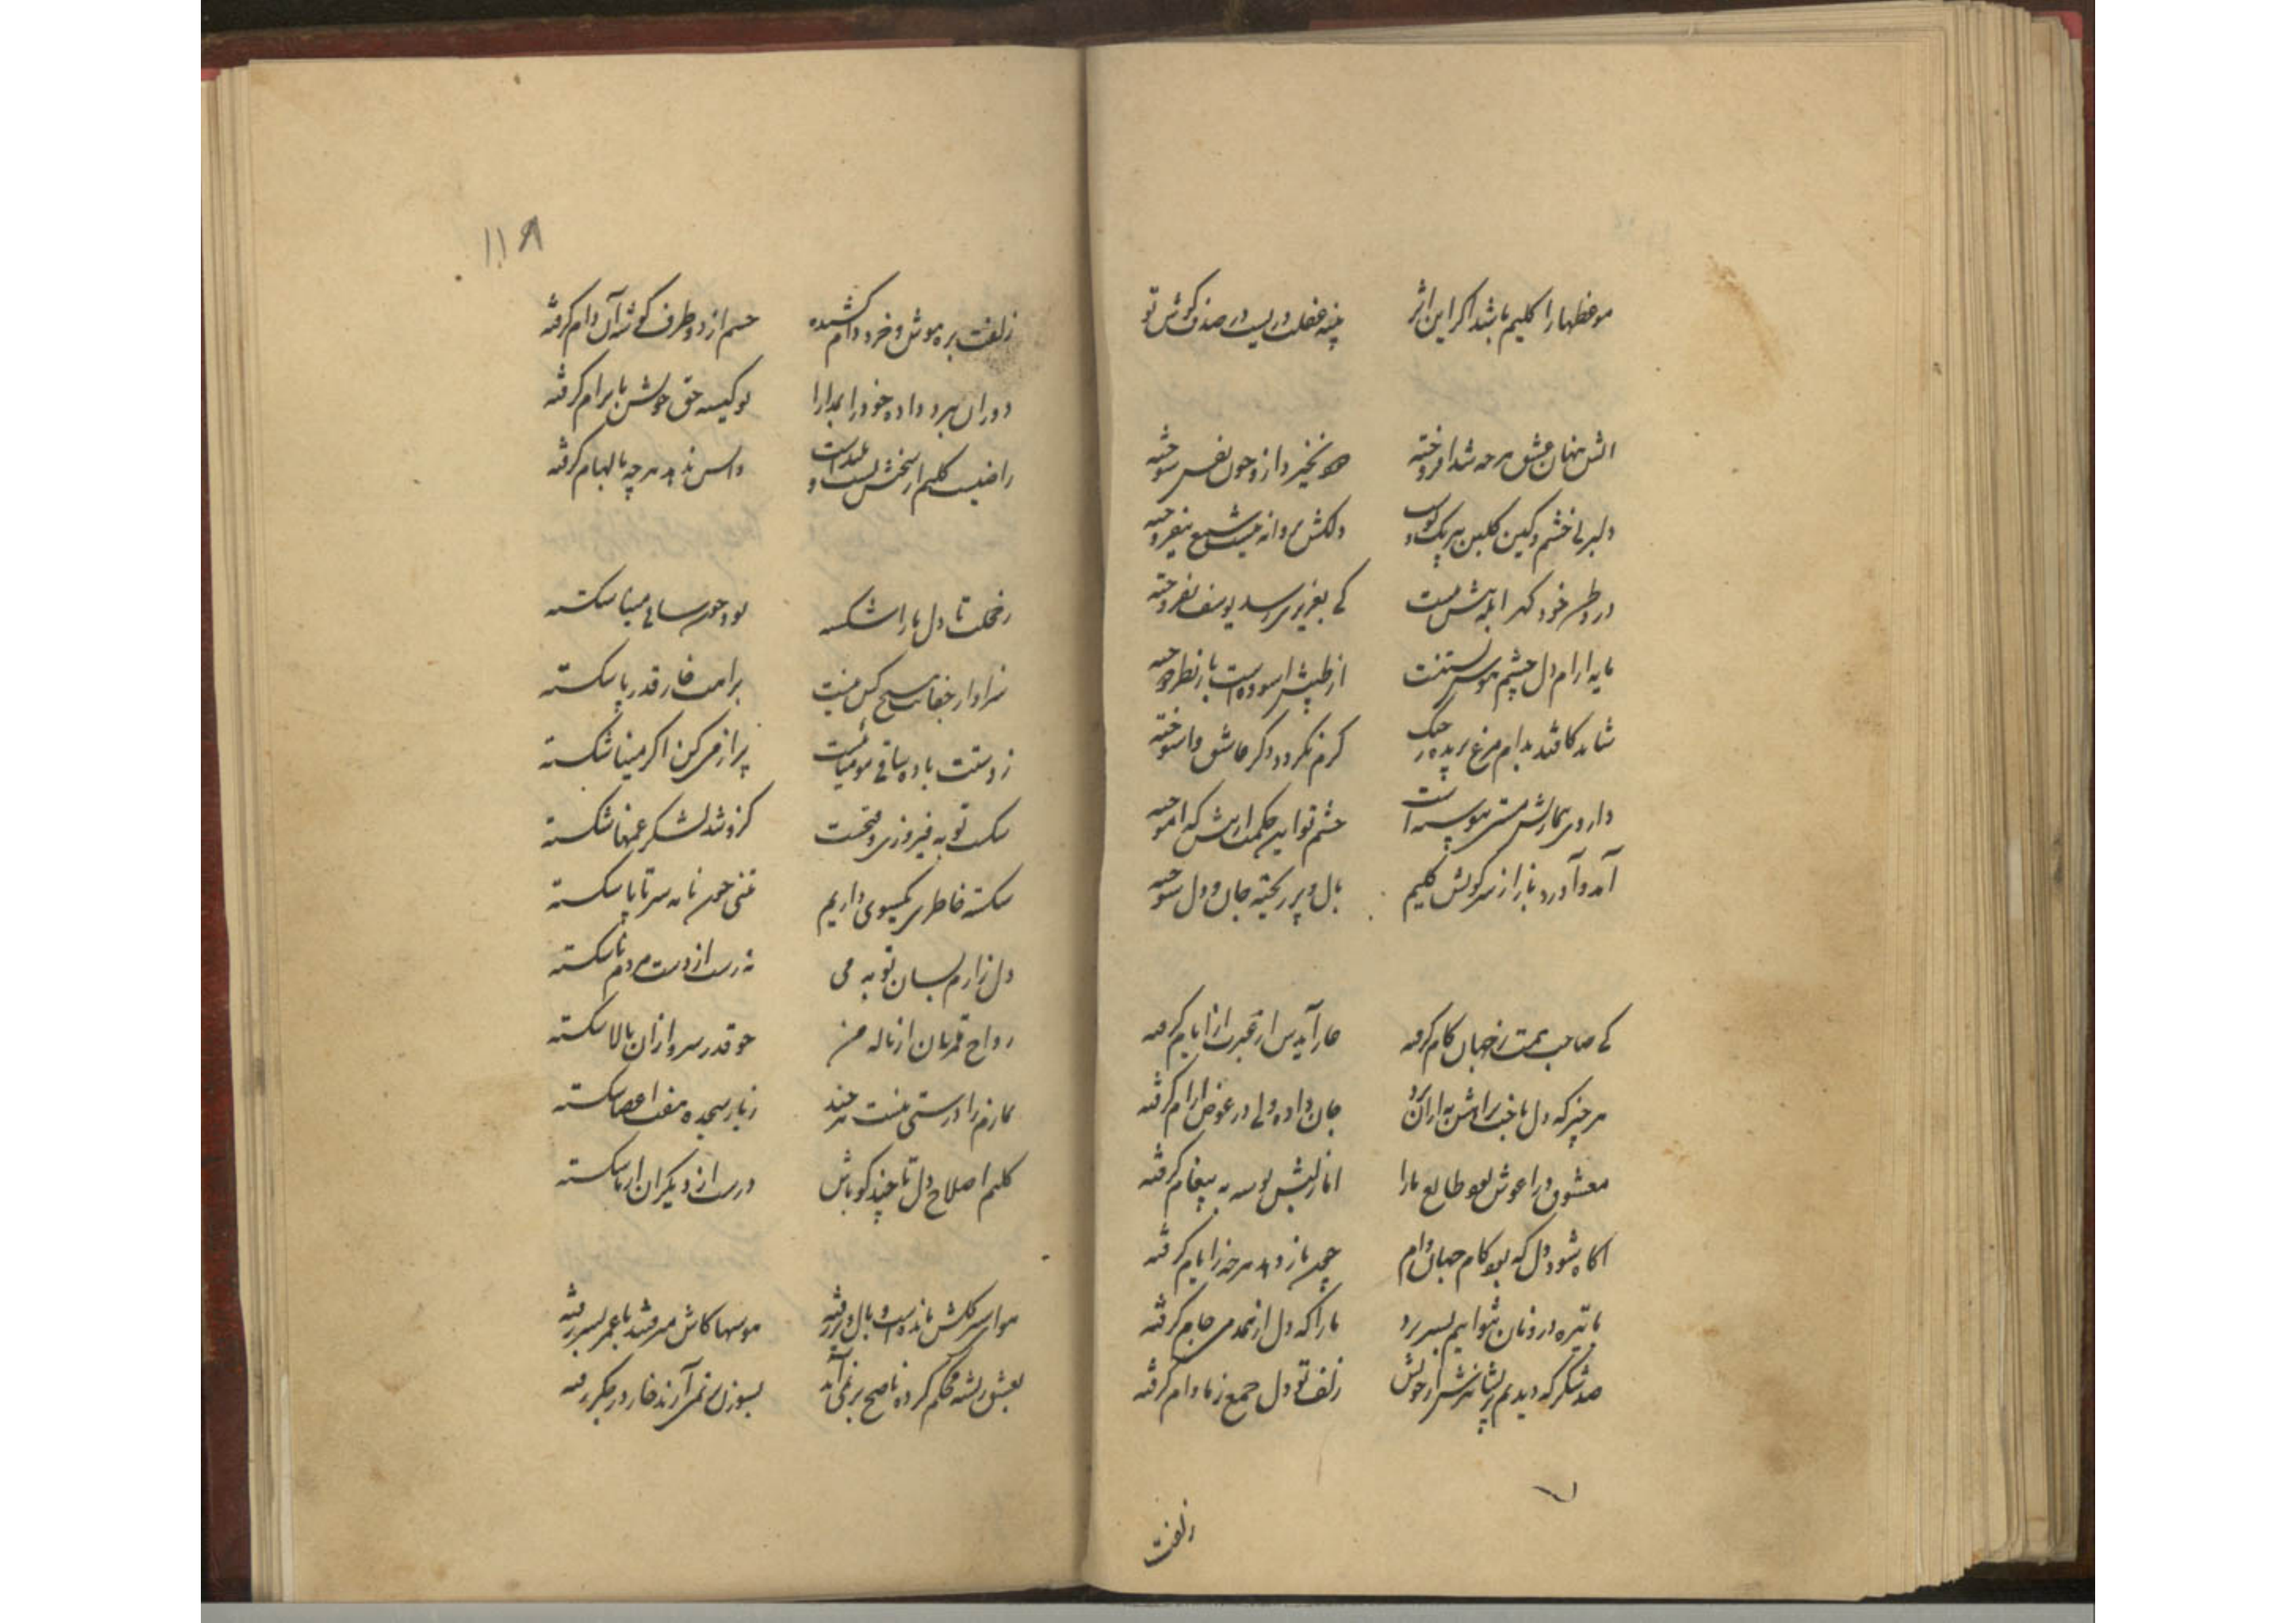 موعظها را کلیم باشد اگر این اثر
پنبه غفلت دریست در صدف گوش تو
اتش پنهان عشق هر که شد افروخته
دود نخیزد ازو چون نفس سوخته
دلبر بی خشم و کین گلبن بی رنگ و بوست
دلکش پروانه نیست شمع نیفروخته
در وطن خود گهر ابله بیش نیست
کی بعزیزی رسد یوسف نفروخته
مایه ارام دل چشم هوس بستنست
از طپش اسوده است باز نظر دوخته
شاید کافتد بدام مرغ پریده ز چنگ
گرم نگردد دگر عاشق واسوخته
داروی بیمارش مستی پیوسته است
چشم تو این حکمت از پیش که اموخته
آمد و آورد باز از سر کویش کلیم
بال و پر ریخته جان و دل سوخته
کی صاحب همت ز جهان کام گرفته
عار آیدش از عبرت از ایام گرفته
هر چیز که دل باخت براهش به ازان برد
جان داده ولی در عوض ارام گرفته
معشوق در اغوش بود طالع ما را
از لبش بوسه به پیغام گرفته
اگاه شود دل که بود کام جهان دام
چون باز دهد هر چه ز ایام گرفته
با تیره درونان نتوانیم بسر برد
ما را که دل از همدمی جام گرفته
صد شکر که دیدیم پریشانتر از خویش
زلف تو دل جمع ز ما وام گرفته
زلفت
۱۱۸
زلفت بره هوش و خرد دام کشیده
چشم از دو طرف گوشه آن دام گرفته
دوران ببرد داده خود را بمدارا
تو کیسه حق خویش بابرام گرفته
راضیست کلیم از بخشش نسیت و
واپس ندهد هر چه بالهام گرفته
ز خجلت تا دل ما را شکسته
بود چون سایه مینا شکسته
سزاوار جفایت هیچ کس نیست
براهت خار قدر پا شکسته
ز دستت باده ساقی مومیائیست
پر از می کن اگر مینا شکسته
شکست توبه فیروزی و فتحست
کزو شد لشکر غمها شکسته
شکسته خاطری گیسوی داریم
تنی چون نامه سر تا پا شکسته
دل زارم بسان توبه می
نه رست از دست مردم نا شکسته
رواج قمریان از ناله من
چو قدر سرو ازان بالا شکسته
نمازم را درستی نیست هر چند
ز بار سجده هفت اعضا شکسته
کلیم اصلاح دل تا چند گو باش
درست از دیگران از ما شکسته
هوای سرکشش مانده است و بال و پر رفته
هوسها کاش میرفتند با عمر بسر رفته
بعشق ریشه محکم کرده ناصح بر نمی آید
بسوزن بر نمی آرند خار در جگر رفته